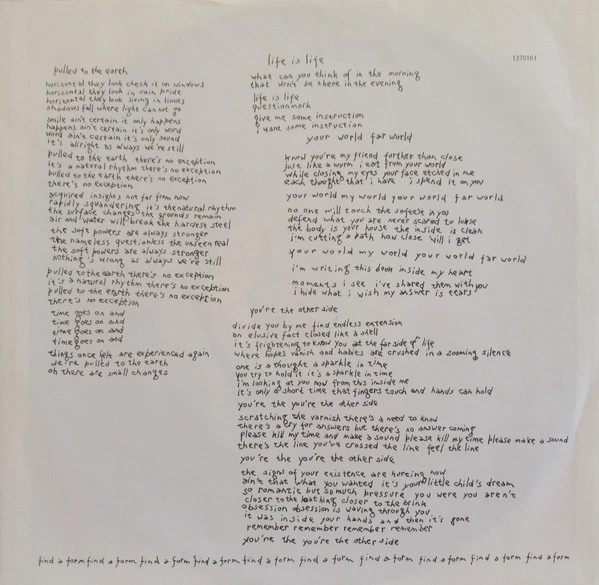 pulled to the earth
horizontal they look check it on windows
horizontal they look in vain pride
horizontal they look living in limits
shadows fall where light can not go
smile ain't certain it only happens
happens ain't certain it's only word
word ain't certain it's only sound
it's allright as always we're still
pulled to the earth there's no exception
it's a natural rhythm there's no exception
pulled to the earth there's no exception
there's no exception
acquired insights not far from now
rapidly squandering it's the natural rhythm
the surface changes the grounds remain
air and water will break the hardest steel
the soft powers are always stronger
the nameless questionless the unseen real
the soft powers are always stronger
nothing's wrong as always we're still
pulled to the earth there's no exception
it's a natural rhythm there's no exception
pulled to the earth there's no exception
there's no exception
time goes on and
time goes on and
time goes on and
time goes on and
things once felt are experienced again
we're pulled to the earth
oh there are small changes
life is life
1270161
what can you think of in the morning
that won't be there in the evening
life is life
questionmark
give me some instruction
I want some instruction
your world far world
know you're my friend further than close
just like a worm i eat from your world
while closing my eyes your face etched in me
each thought that i have i spend it on you
your world my world your world far world
no one will touch the softest in you
defend what you are never scared to loose
the body is your house the inside is clean
i'm cutting a path how close will i get
your world my world your world far world
i'm writing this down inside my heart
moments i see i've shared them with you
i hide what i wish my answer is tears
you're the other side
divide you by me find endless extension
an elusive fact closed like a shell
it's frightening to know you at the far side of life
where hopes vanish and habits are crushed in a zooming silence
one is a thought a sparkle in time
you try to hold it it's a sparkle in time
i'm looking at you now from this inside me
it's only a short time that fingers touch and hands can hold
you're the you're the other side
scratching the varnish there's a need to know
there's a cry for answers but there's no answer coming
please kill my time and make a sound please kill my time please make a sound
there's the line you've crossed the line feel the line
you're the you're the other side
the signs of your existence are hurting now
ain't that what you wanted it's your little child's dream
so romantic but so much pressure you were you aren't
closer to the loathing closer to the brink
obsession obsession is waving through you
it was inside your hands and then it's gone
remember remember remember remember
you're the you're the other side
find a form find a form find a form find a form find a form find a form find a form find a form find a form find a form